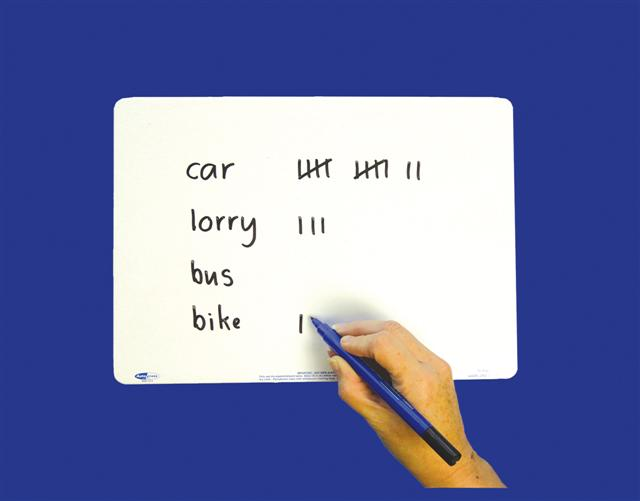 car 𝍸 𝍸 ||
lorry |||
bus
bike |